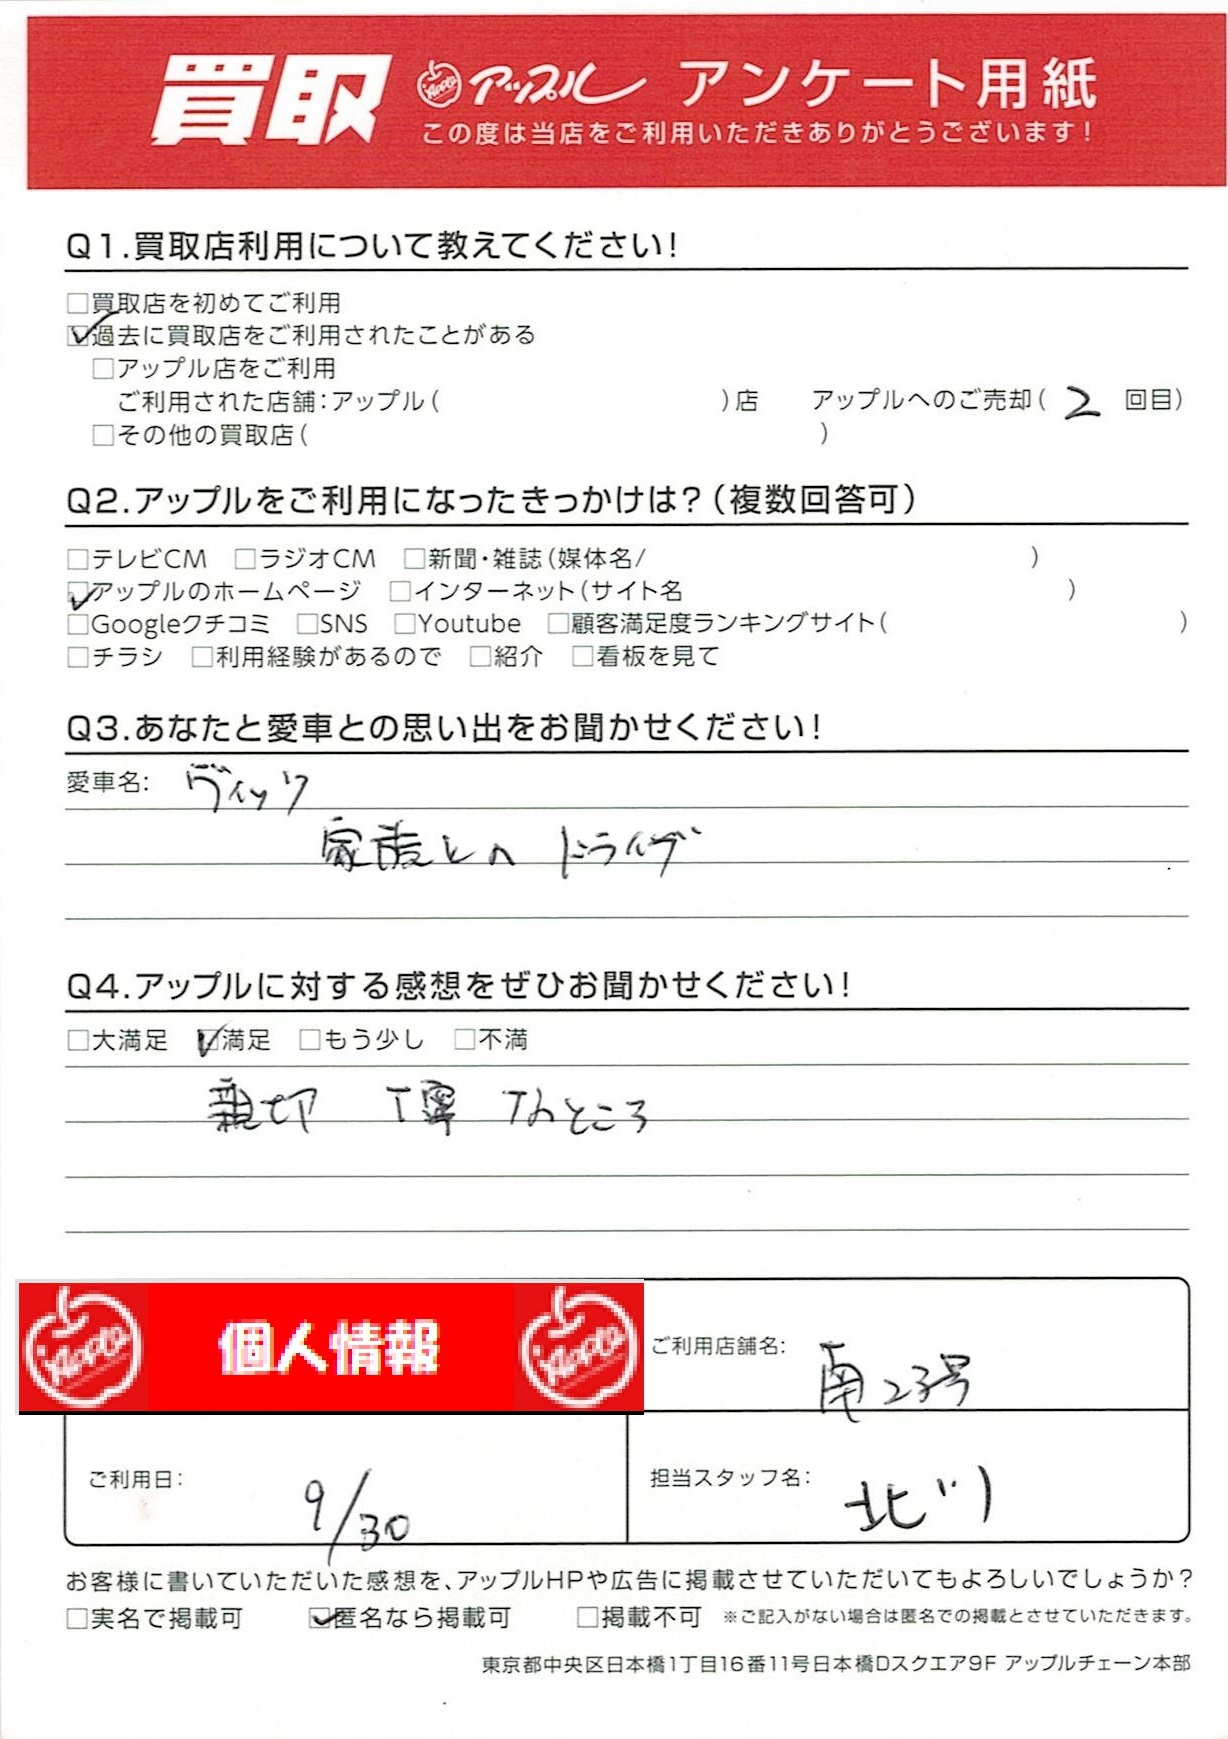 買取 アップル アンケート用紙
この度は当店をご利用いただきありがとうございます!
Q1.買取店利用について教えてください!
□買取店を初めてご利用
☑過去に買取店をご利用されたことがある
□アップル店をご利用
ご利用された店舗:アップル( )店 アップルへのご売却( 2 回目)
□その他の買取店( )
Q2.アップルをご利用になったきっかけは?(複数回答可)
□テレビCM □ラジオCM □新聞・雑誌(媒体名/ )
☑アップルのホームページ □インターネット(サイト名 )
□Googleクチコミ □SNS □Youtube □顧客満足度ランキングサイト( )
□チラシ □利用経験があるので □紹介 □看板を見て
Q3.あなたと愛車との思い出をお聞かせください!
愛車名: ヴィッツ
家族とのドライブ
Q4.アップルに対する感想をぜひお聞かせください!
□大満足 ☑満足 □もう少し □不満
親切 丁寧 なところ
Apple 個人情報 Apple
ご利用店舗名: 南23号
ご利用日: 9/30
担当スタッフ名: 北川
お客様に書いていただいた感想を、アップルHPや広告に掲載させていただいてもよろしいでしょうか?
□実名で掲載可 ☑匿名なら掲載可 □掲載不可 ※ご記入がない場合は匿名での掲載とさせていただきます。
東京都中央区日本橋1丁目16番11号日本橋Dスクエア9F アップルチェーン本部